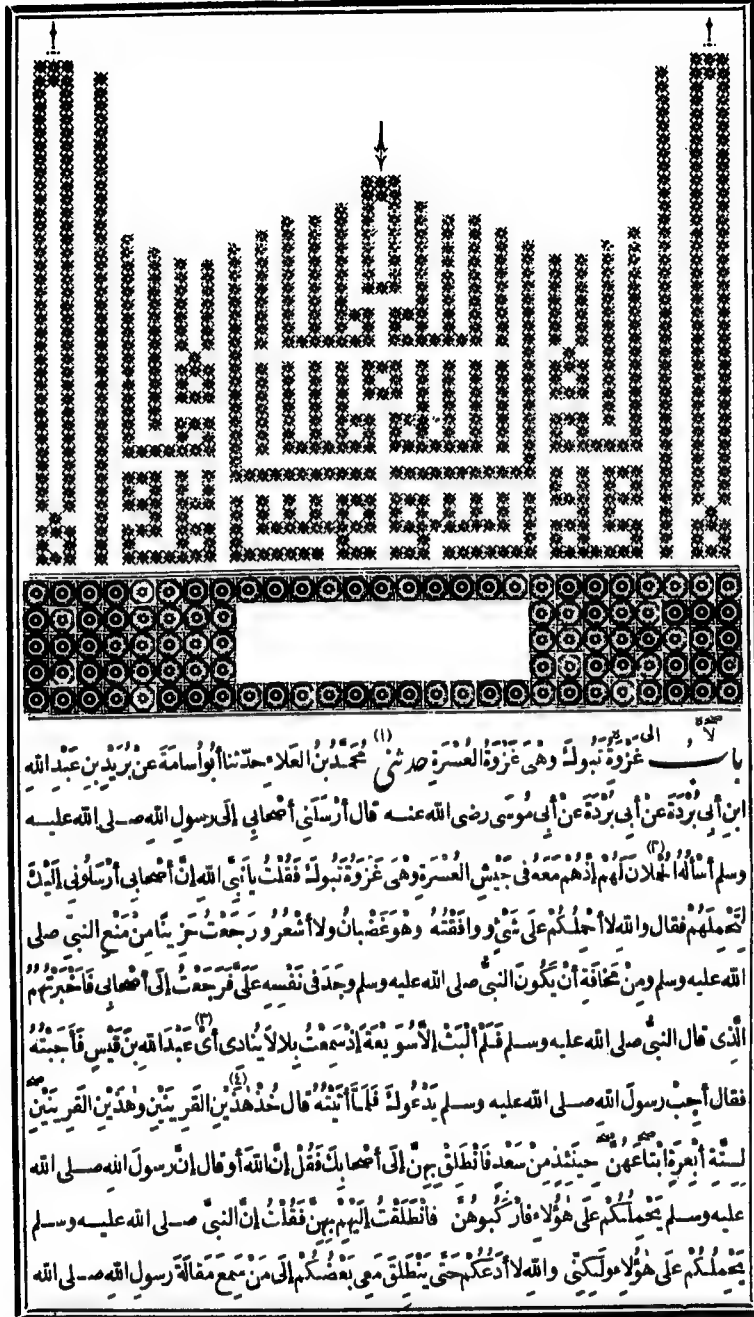 لا صـ الى
بابُ غَزْوَةِ تَبُوكَ وَهْىَ غَزْوَةُ العُسْرَةِ حدثنى (١) مُحَمَّدُ بنُ العَلَاءِ حدّثنا أَبُو أُسَامَةَ عَنْ بُرَيْدِ بنِ عَبْدِ الله
ابنِ أَبِى بُرْدَةَ عَنْ أَبِى بُرْدَةَ عَنْ أَبِى مُوسَى رضى الله عنـه قال أَرْسَلَنِى أَصْحَابِى إِلَى رسولِ اللهِ صـلى الله عليـه
وسلم أَسْأَلُهُ (٢) الحُمْلَانَ لَهُمْ إِذْ هُمْ مَعَهُ فى جَيْشِ العُسْرَةِ وَهْىَ غَزْوَةُ تَبُوكَ فَقُلْتُ يا نَبِىَّ اللهِ إِنَّ أَصْحَابِى أَرْسَلُونِى إِلَيْكَ
لِتَحْمِلَهُمْ فقال واللهِ لا أَحْمِلُكُمْ عَلَى شَىْءٍ ووافَقْتُهُ وهْوَ غَضْبَانُ ولا أَشْعُرُ ورَجَعْتُ حَزِينًا مِنْ مَنْعِ النبىِّ صلى
الله عليه وسلم ومِنْ مَخَافَةِ أَنْ يَكُونَ النبىُّ صلى الله عليه وسلم وجَدَ فى نَفْسِهِ عَلَىَّ فَرَجَعْتُ إِلَى أَصْحَابِى فَأَخْبَرْتُهُمُ
الَّذِى قال النبىُّ صلى الله عليه وسـلم فَلَمْ أَلْبَثْ إِلَّا سُوَيْعَةً إِذْ سَمِعْتُ بِلَالًا يُنَادِى أَىْ (٣) عَبْدَ اللهِ بنَ قَيْسٍ فَأَجَبْتُهُ
فقال أَجِبْ رسولَ الله صـلى الله عليه وسـلم يَدْعُوكَ فَلَمَّا أَتَيْتُهُ قال خُذْ هٰذَيْنِ (٤) القَرِينَيْنِ وهٰذَيْنِ القَرِينَيْنِ صـ
لِسِتَّةِ أَبْعِرَةٍ ابْتَاعَهُنَّ حِينَئِذٍ مِنْ سَعْدٍ فَانْطَلِقْ بِهِنَّ إِلَى أَصْحَابِكَ فَقُلْ إِنَّ اللهَ أوقال إِنَّ رسولَ اللهِ صـلى الله
عليه وسـلم يَحْمِلُكُمْ عَلَى هٰؤُلَاءِ فَارْكَبُوهُنَّ فانْطَلَقْتُ إِلَيْهِمْ بِهِنَّ فَقُلْتُ إِنَّ النبىَّ صـلى الله عليـه وسـلم
يَحْمِلُكُمْ عَلَى هٰؤُلَاءِ ولَكِنِّى واللهِ لا أَدَعُكُمْ حَتَّى يَنْطَلِقَ مَعِى بَعْضُكُمْ إِلَى مَنْ سَمِعَ مَقَالَةَ رسولِ اللهِ صـلى الله